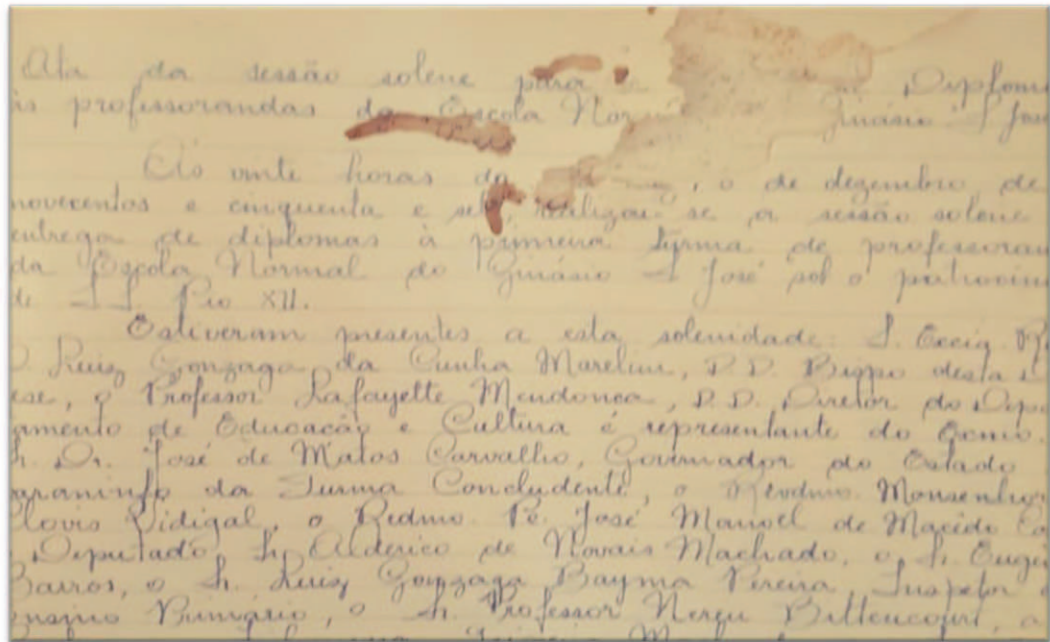 Ata da sessão solene para Diplom
às professorandas da Escola Nor Ginásio S. José
Às vinte horas do , o de dezembro de
novecentos e cinquenta e sete, realizou-se a sessão solene
entrega de diplomas à primeira turma de professoran
da Escola Normal do Ginásio S. José sob o patrocin
de S.S. Pio XII.
Estiveram presentes a esta solenidade: S. Excia. R
D. Luiz Gonzaga da Cunha Marelim, D.D. Bispo desta
ese, o Professor Lafayette Mendonça, D.D. Diretor do Dep
amento de Educação e Cultura é representante do Exmo.
Sr. Dr. José de Matos Carvalho, Governador do Estado
paraninfo da Turma Concludente, o Revdmo. Monsenhor
Clovis Vidigal, o Redmo. Pe. José Manoel de Macêdo Co
Deputado Sr. Alderico de Novais Machado, o Sr. Eugê
Barros, o Sr. Luiz Gonzaga Bayma Pereira, Inspetor
Ensino Primário, o Sr. Professor Nereu Bittencourt, a